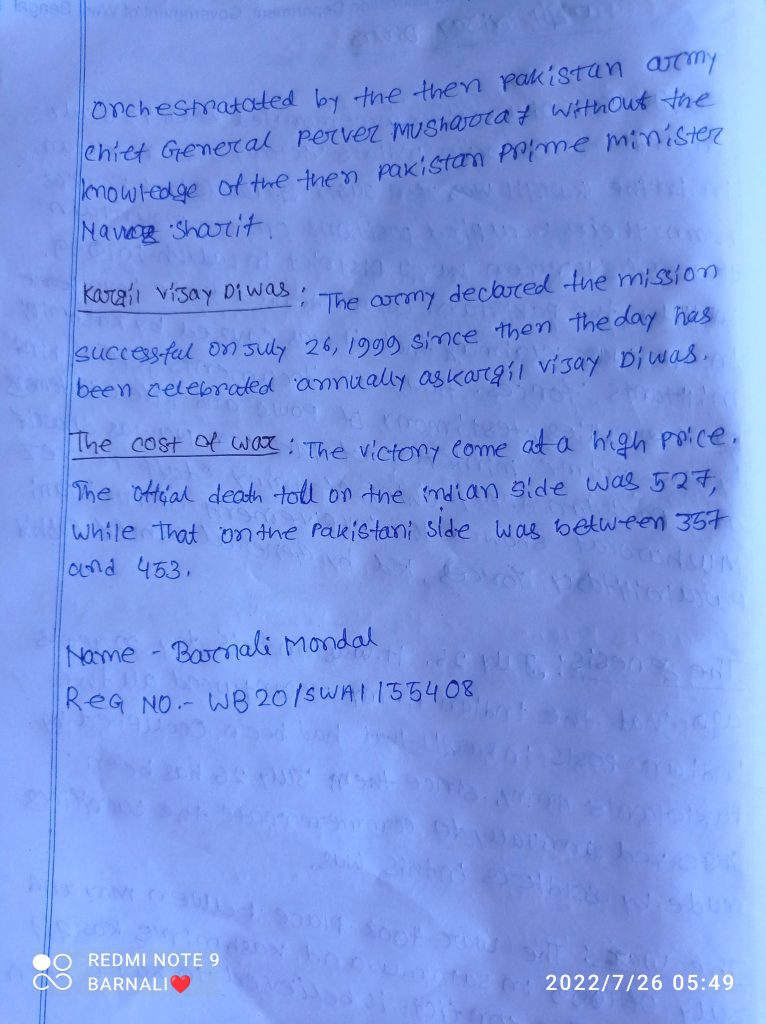 Orchestratated by the then pakistan army
chief General Pervez Musharraf without the
knowledge of the then pakistan prime minister
Nawaz Sharif.
Kargil vijay Diwas : The army declared the mission
successful on July 26, 1999 since then the day has
been celebrated annually as kargil vijay Diwas.
The cost of war : The victory come at a high price.
The offcial death toll on the indian side was 527,
while that on the pakistani side was between 357
and 453.
Name - Barnali Mondal
Reg NO.- WB20/SWA1155408
REDMI NOTE 9
BARNALI❤️
2022/7/26 05:49